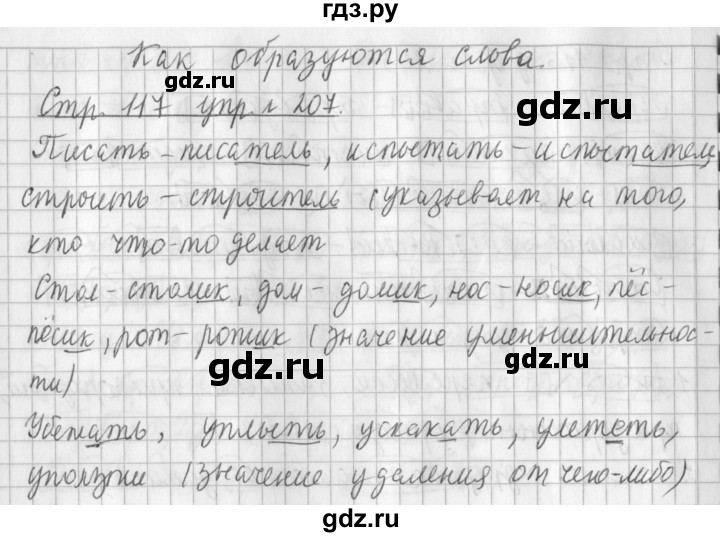 гдз.ру
Как образуются слова.
gdz.ru
gdz.ru
Стр. 117 упр. 207.
Писать - писатель, испытать - испытатель
строить - строитель (указывает на того,
кто что-то делает
gdz.ru
gdz.ru
Стол - столик, дом - домик, нос - носик, пёс -
пёсик, рот - ротик (значение уменьшительнос-
gdz.ru
gdz.ru
ти)
Убежать, уплыть, ускакать, улететь,
уползти (значение удаления от чего-либо)
gdz.ru
gdz.ru
gdz.ru